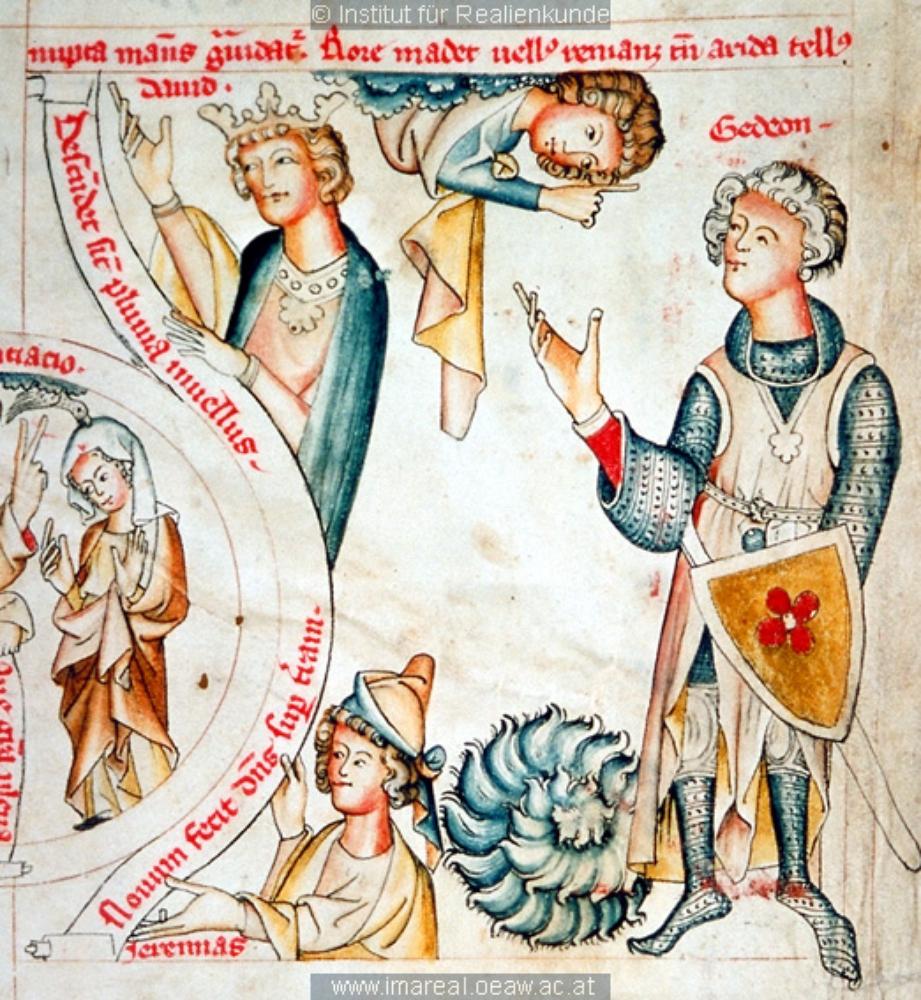 © Institut für Realienkunde
nupta man̄s g̅uidat᷑. Rore madet uell᷒ remanz tn̄ arida tell᷒
dauid.
Gedeon
Descēdet sic̄ pluuia in uellus.
ciacio.
Nouum fecit dn̄s sup̄ t̄ram.
Jeremias
www.imareal.oeaw.ac.at